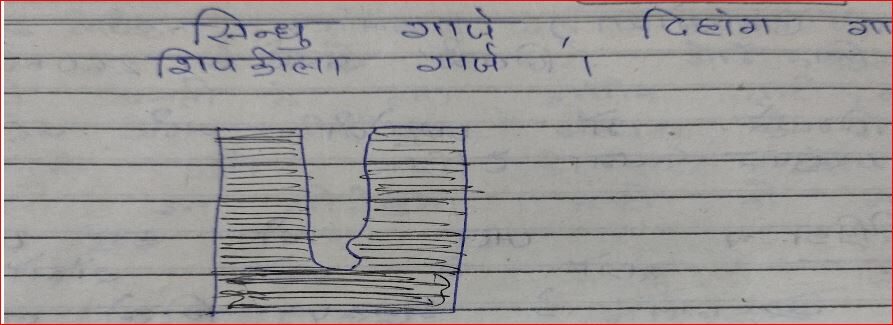 सिन्धु गार्ज, दिहांग गा
शिपकीला गार्ज ।